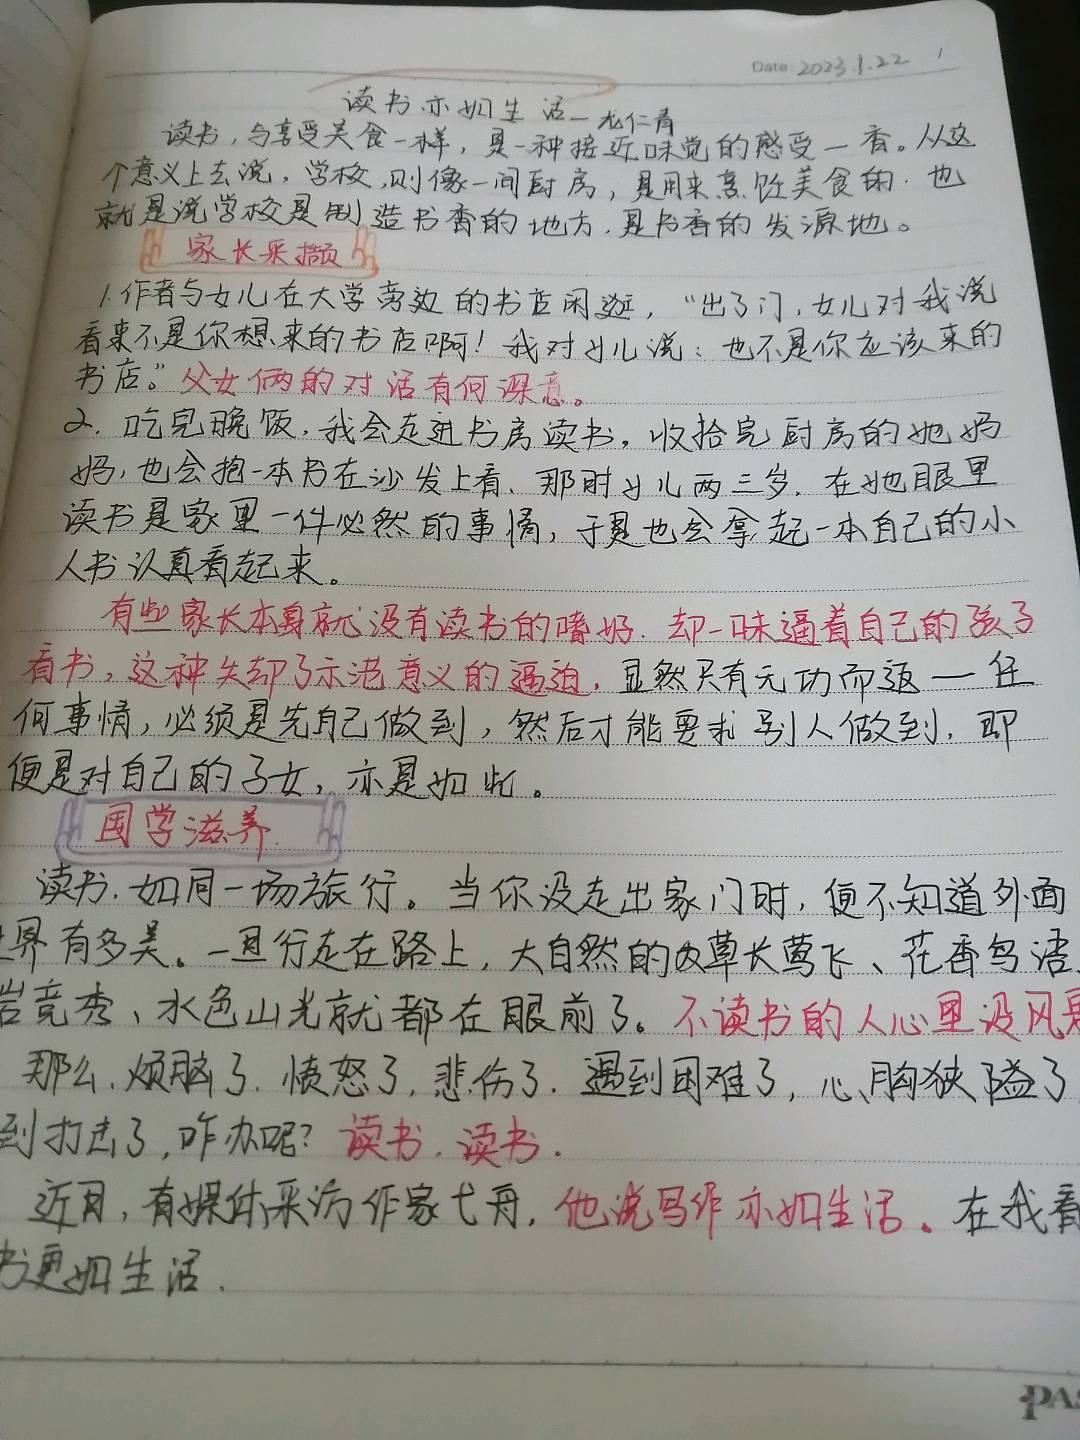 Date 2023.1.22 1
读书亦如生活—龙仁青
读书，与享受美食一样，是一种接近味觉的感受—香。从这
个意义上去说，学校，则像一间厨房，是用来烹饪美食的．也
就是说学校是制造书香的地方，是书香的发源地。
家长采撷
1.作者与女儿在大学旁边的书店闲逛，“出了门，女儿对我说
看来不是你想来的书店啊！我对女儿说：也不是你应该来的
书店。”父女俩的对话有何深意。
2．吃完晚饭，我会走进书房读书，收拾完厨房的她妈
妈，也会抱一本书在沙发上看、那时女儿两三岁．在她眼里
读书是家里一件必然的事情，于是也会拿起一本自己的小
人书认真看起来。
有些家长本身就没有读书的嗜好．却一味逼着自己的孩子
看书，这种失却了示范意义的逼迫，显然只有无功而返—任
何事情，必须是先自己做到，然后才能要求别人做到，即
便是对自己的子女，亦是如此。
国学滋养
读书，如同一场旅行。当你没走出家门时，便不知道外面
世界有多美。一旦行走在路上，大自然的草长莺飞、花香鸟语、
岩竞秀、水色山光就都在眼前了。不读书的人心里没风景
那么．烦脑了．愤怒了，悲伤了．遇到困难了，心胸狭隘了
到打击了，咋办呢？读书．读书．
近日，有媒体采访作家弋舟，他说写作亦如生活。在我看
书更如生活．